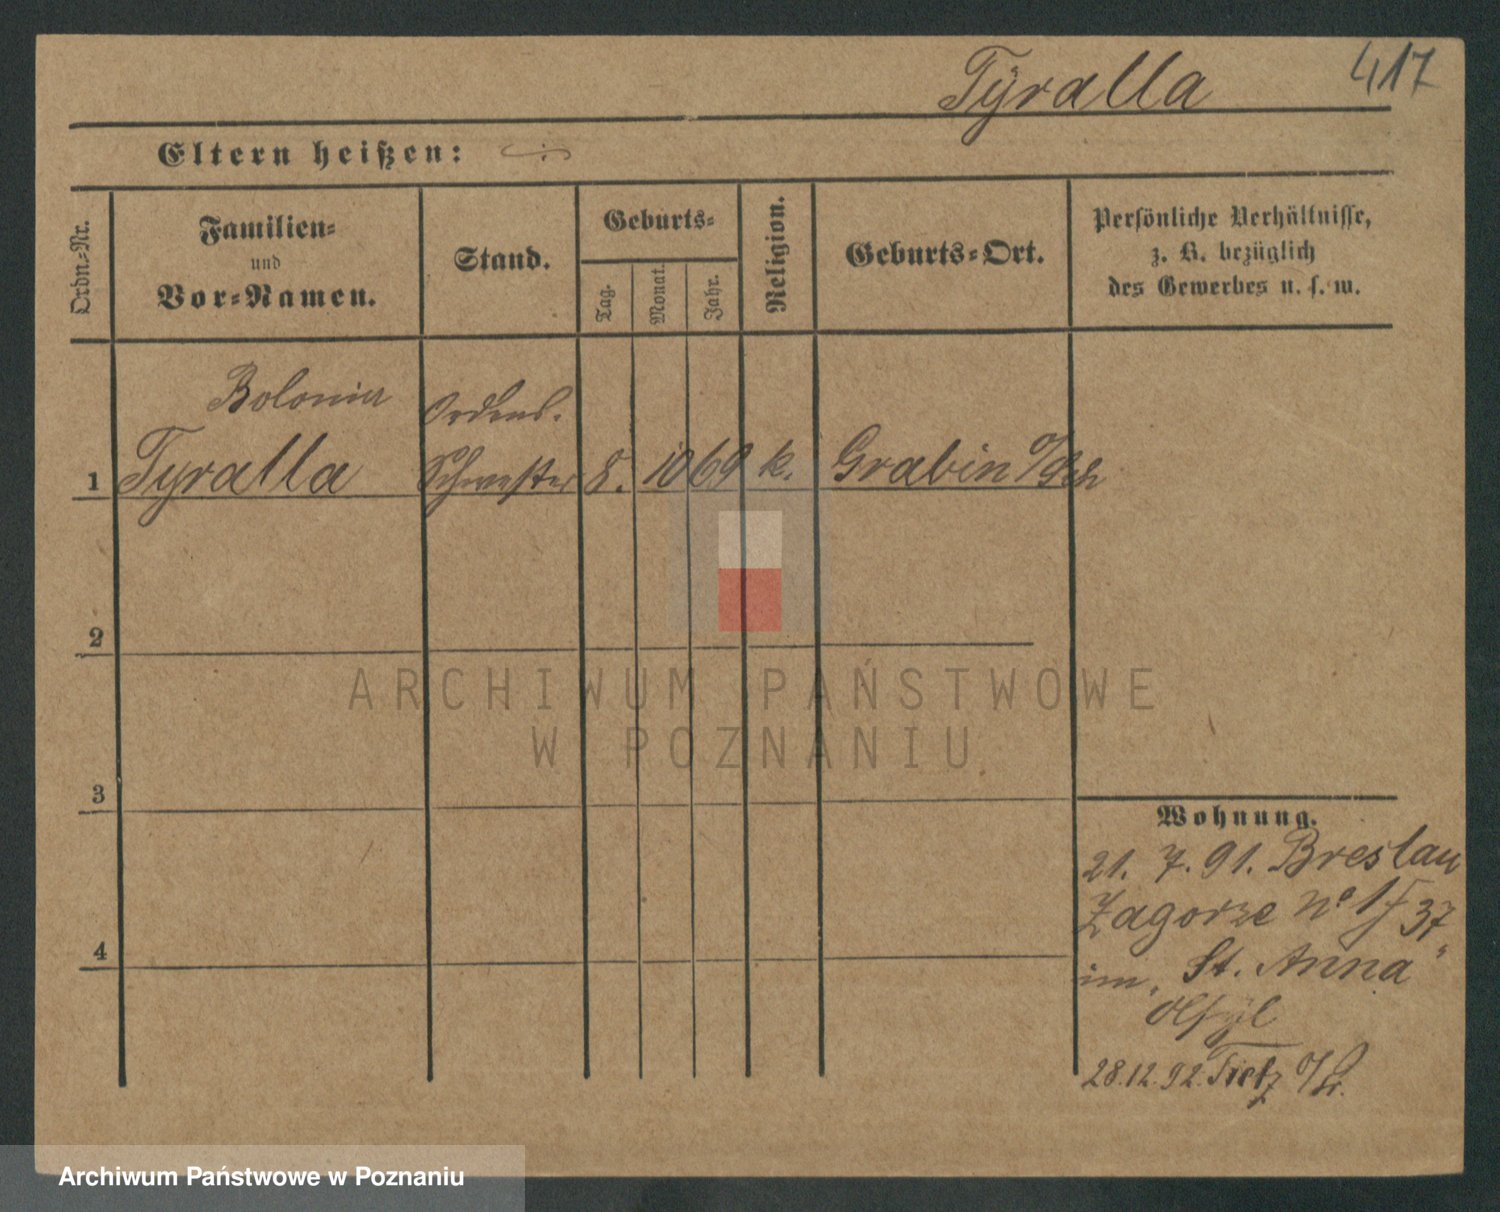 Tyralla
417
Eltern heißen:
Ordn.-Nr.
Familien-
und
Vor-Namen.
Stand.
Geburts-
Tag.
Monat.
Jahr.
Religion.
Geburts-Ort.
Persönliche Verhältnisse,
z. B. bezüglich
des Gewerbes u. s. w.
Bolonia
Ordens-
1 Tyralla Schwester 8. 10 69 k. Grabin
2
3
4
Wohnung.
21. 7. 91. Breslau
Zagorze No 37
im „St. Anna"
Asyl
28.12.92. Tietz
ARCHIWUM PAŃSTWOWE
W POZNANIU
Archiwum Państwowe w Poznaniu